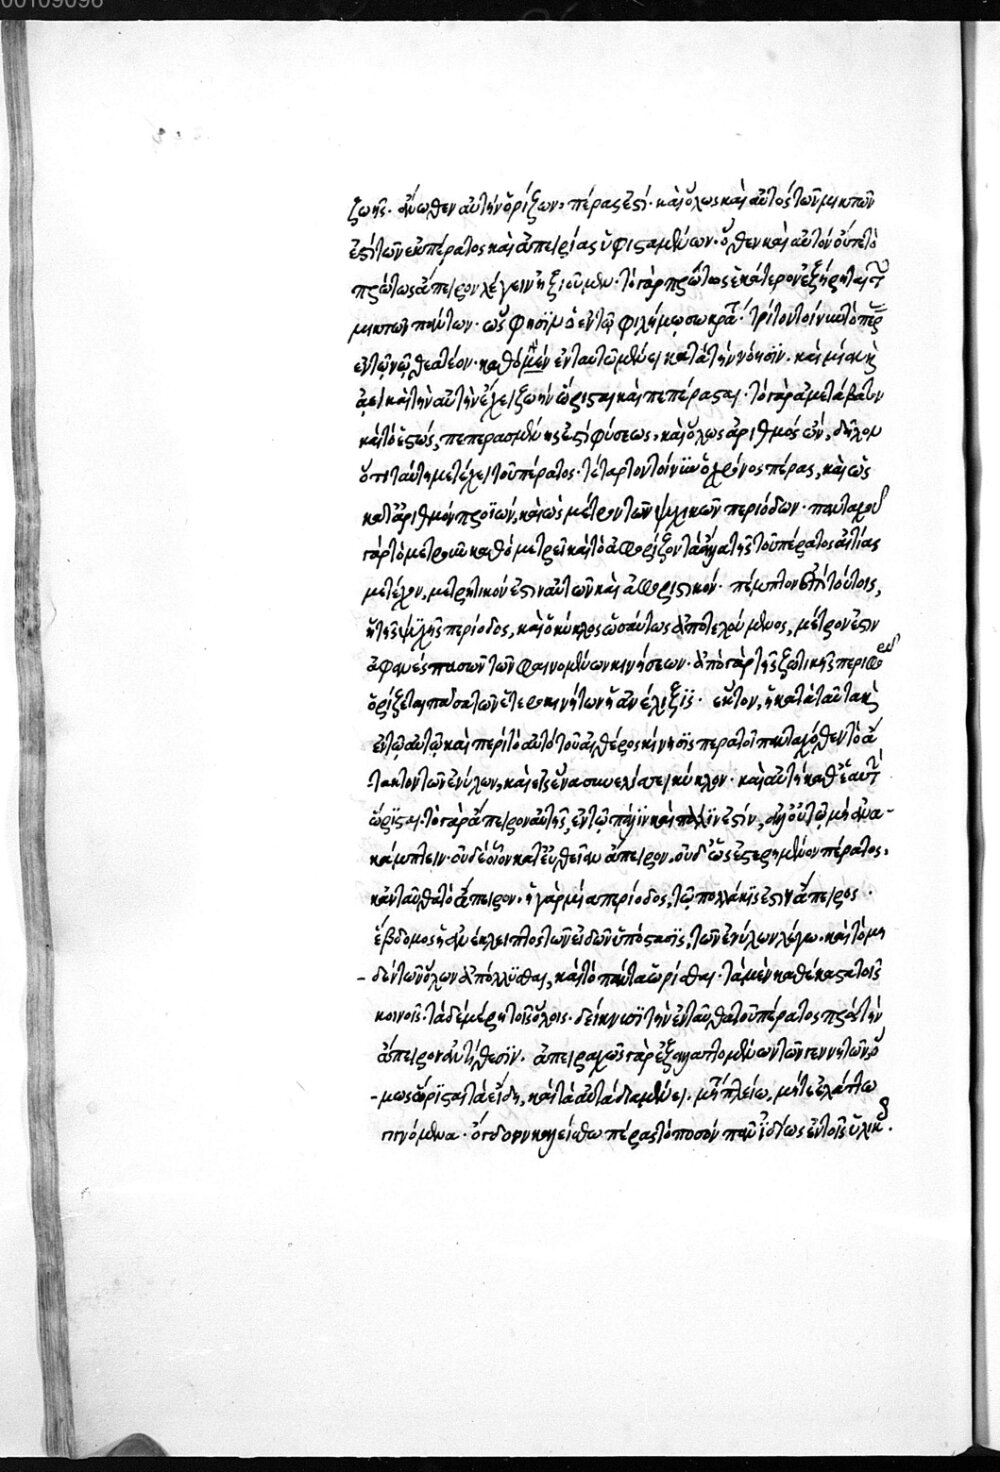 00109098
ζωῆς. ἄνωθεν αὐτὴν ὁρίζων, πέρας ἐστί. καὶ ὅλως καὶ αὐτὸς τῶν μικτῶν
ἐστὶ τῶν ἐκ πέρατος καὶ ἀπειρίας ὑφισταμένων. ὅθεν καὶ αὐτὸν οὔπω τὸ
πρώτως ἄπειρον λέγειν ἠξιοῦμεν. τὸ γὰρ πρώτως ἑκάτερον ἐξῄρηται τῶν
μικτῶν πάντων. ὥς φησιν ὁ ἐν τῷ φιλήβῳ σωκράτης. τρίτον τοίνυν τὸ πέρας
ἐν τῷ νῷ θεατέον. καθὸ μὲν ἐν ταυτῷ μένει κατὰ τὴν νόησιν. καὶ μίαν καὶ
ἀεὶ καὶ τὴν αὐτὴν ἔχει ζωὴν ὥρισται καὶ πεπέρασται. τὸ γὰρ ἀμετάβατον
καὶ τὸ ἑστώς, πεπερασμένης ἐστὶ φύσεως. καὶ ὅλως ἀριθμὸς ὤν, δῆλον
ὅτι ταύτῃ μετέχει τοῦ πέρατος. τέταρτον τοίνυν ὁ χρόνος πέρας, καὶ ὡς
κατ' ἀριθμὸν προϊών, καὶ ὡς μέτρον τῶν ψυχικῶν περιόδων. πανταχοῦ
γὰρ τὸ μετροῦν καθὸ μετρεῖ καὶ τὸ ἀφορίζον τὰ ἄλλα τῆς τοῦ πέρατος αἰτίας
μετέχον, μετρητικόν ἐστιν αὐτῶν καὶ ἀφοριστικόν. πέμπτον ἐπὶ τούτοις,
ἡ τῆς ψυχῆς περίοδος, καὶ ὁ κύκλος ὡσαύτως ἀποτελούμενος, μέτρον ἐστὶν
ἀφανὲς πασῶν τῶν φαινομένων κινήσεων. ἀπὸ γὰρ τῆς ζωτικῆς περιφορᾶς
ὁρίζεται πᾶσα τῶν ἑτεροκινήτων ἡ ἀνέλιξις. ἕκτον, ἡ κατὰ ταὐτὰ καὶ
ἐν τῷ αὐτῷ καὶ περὶ τὸ αὐτὸ τοῦ αἰθέρος κίνησις περατοῖ πανταχόθεν τὸ ἄ-
τακτον τῶν ἐνύλων, καὶ εἰς ἕνα συνελίττει κύκλον. καὶ αὐτὴ καθ' ἑαυτὴν
ὥρισται. τὸ γὰρ ἄπειρον αὐτῆς, ἐν τῷ πάλιν καὶ πάλιν ἐστίν, ἀλλ' οὐ τῷ μὴ ἀνα-
κάμπτειν. οὐδὲ οἷον κατ' εὐθεῖαν ἄπειρον. οὐδ' ὡς ἐστερημένον πέρατος,
κἀνταῦθα τὸ ἄπειρον. ἡ γὰρ μία περίοδος, τῷ πολλάκις ἐστὶν ἄπειρος.
ἕβδομος ἡ ἀνέκλειπτος τῶν εἰδῶν ὑπόστασις, τῶν ἐνύλων λέγω. καὶ τὸ μη-
δὲν τῶν ὅλων ἀπόλλυσθαι, καὶ τὸ πάντα ὡρίσθαι. τὰ μὲν καθέκαστα τοῖς
κοινοῖς. τὰ δὲ μέρη τοῖς ὅλοις. δείκνυσι τὴν ἐνταῦθα τοῦ πέρατος πρὸς τὴν
ἄπειρον ἀντίθεσιν. ἀπειραχῶς γὰρ ἐξαλλαττομένων τῶν γεννητῶν, ὅ-
μως ὥρισται τὰ εἴδη, καὶ τὰ αὐτὰ διαμένει. μήτε πλείω, μήτε ἐλάττω
γινόμενα. ὄγδοον καλείσθω πέρας τὸ ποσὸν πᾶν ἰδίως ἐν τοῖς ὑλικοῖς.